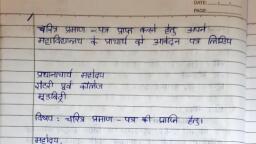 DATE:
PAGE:
चरित्र प्रमाण - पत्र प्राप्त करने हेतु अपने
महाविद्यालय के प्राचार्य को आवेदन पत्र लिखिए
प्रधानाचार्य महोदय
रोटरी पूर्व कॉलेज
मूडबिद्री
विषय : चरित्र प्रमाण - पत्र की प्राप्ति हेतु।
महोदय,